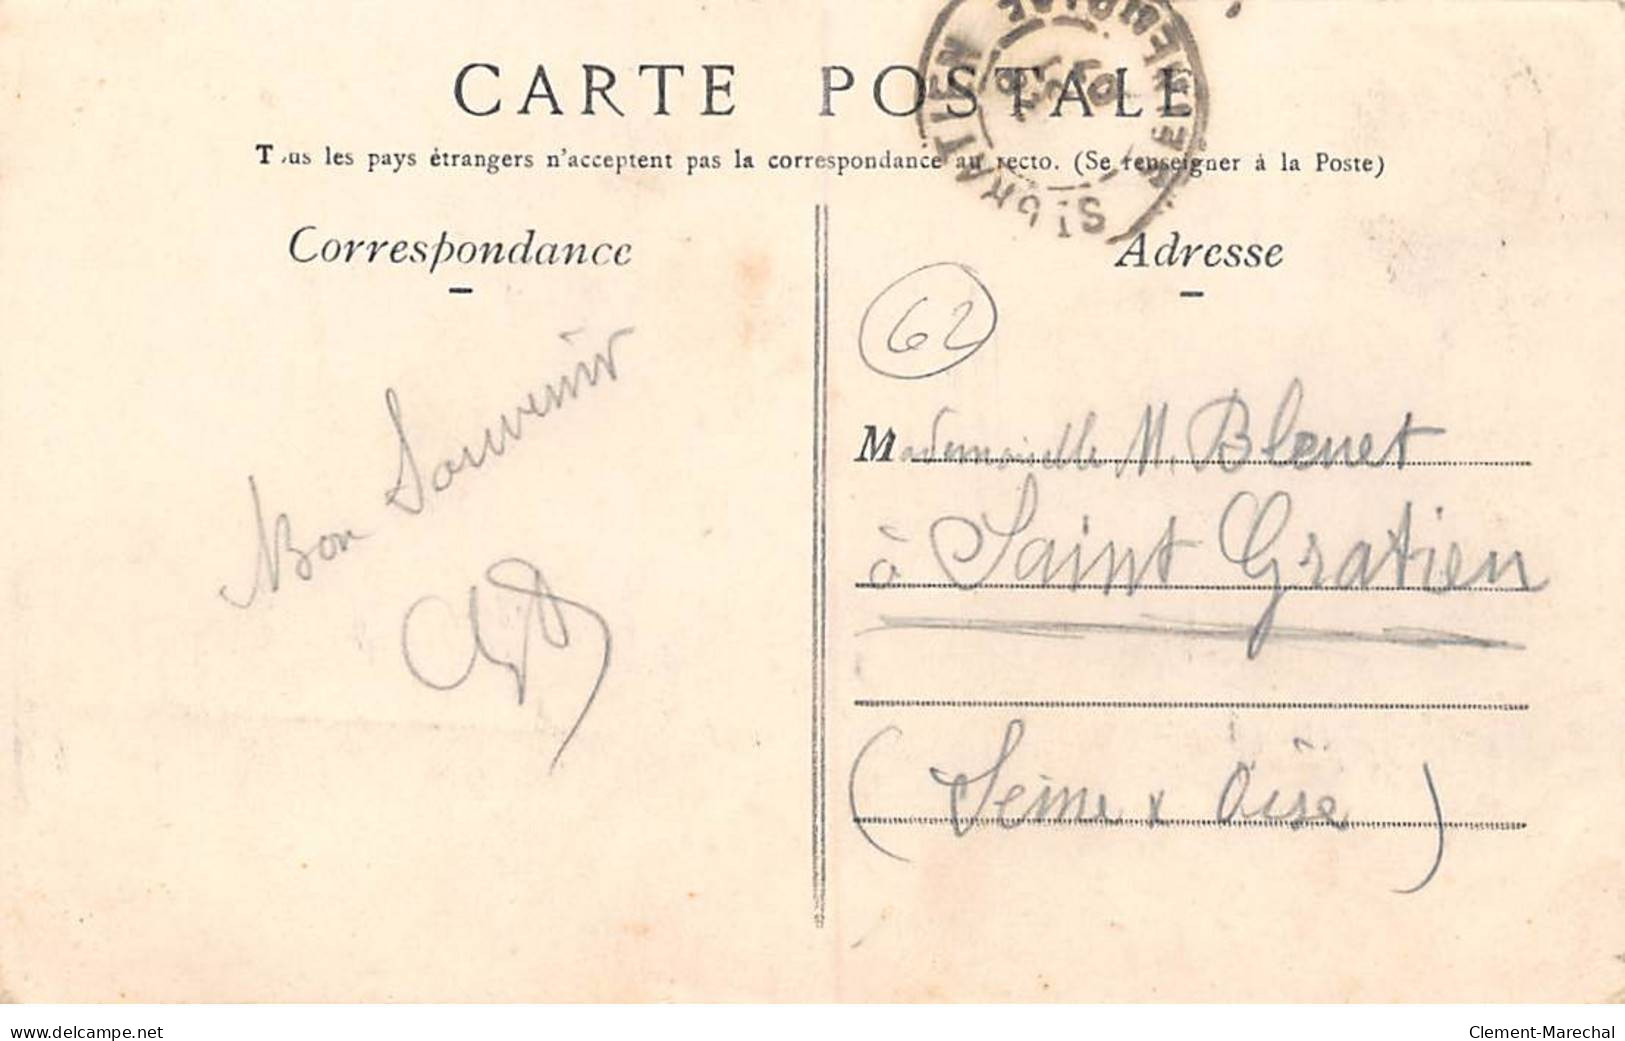 CARTE POSTALE
Tous les pays étrangers n'acceptent pas la correspondance au recto. (Se renseigner à la Poste)
ST GRATIEN
SEINE-ET-OISE
Correspondance
Adresse
62
Bon Souvenir
Mademoiselle M. Blouet
à Saint Gratien
(Seine & Oise)
www.delcampe.net
Clement-Marechal